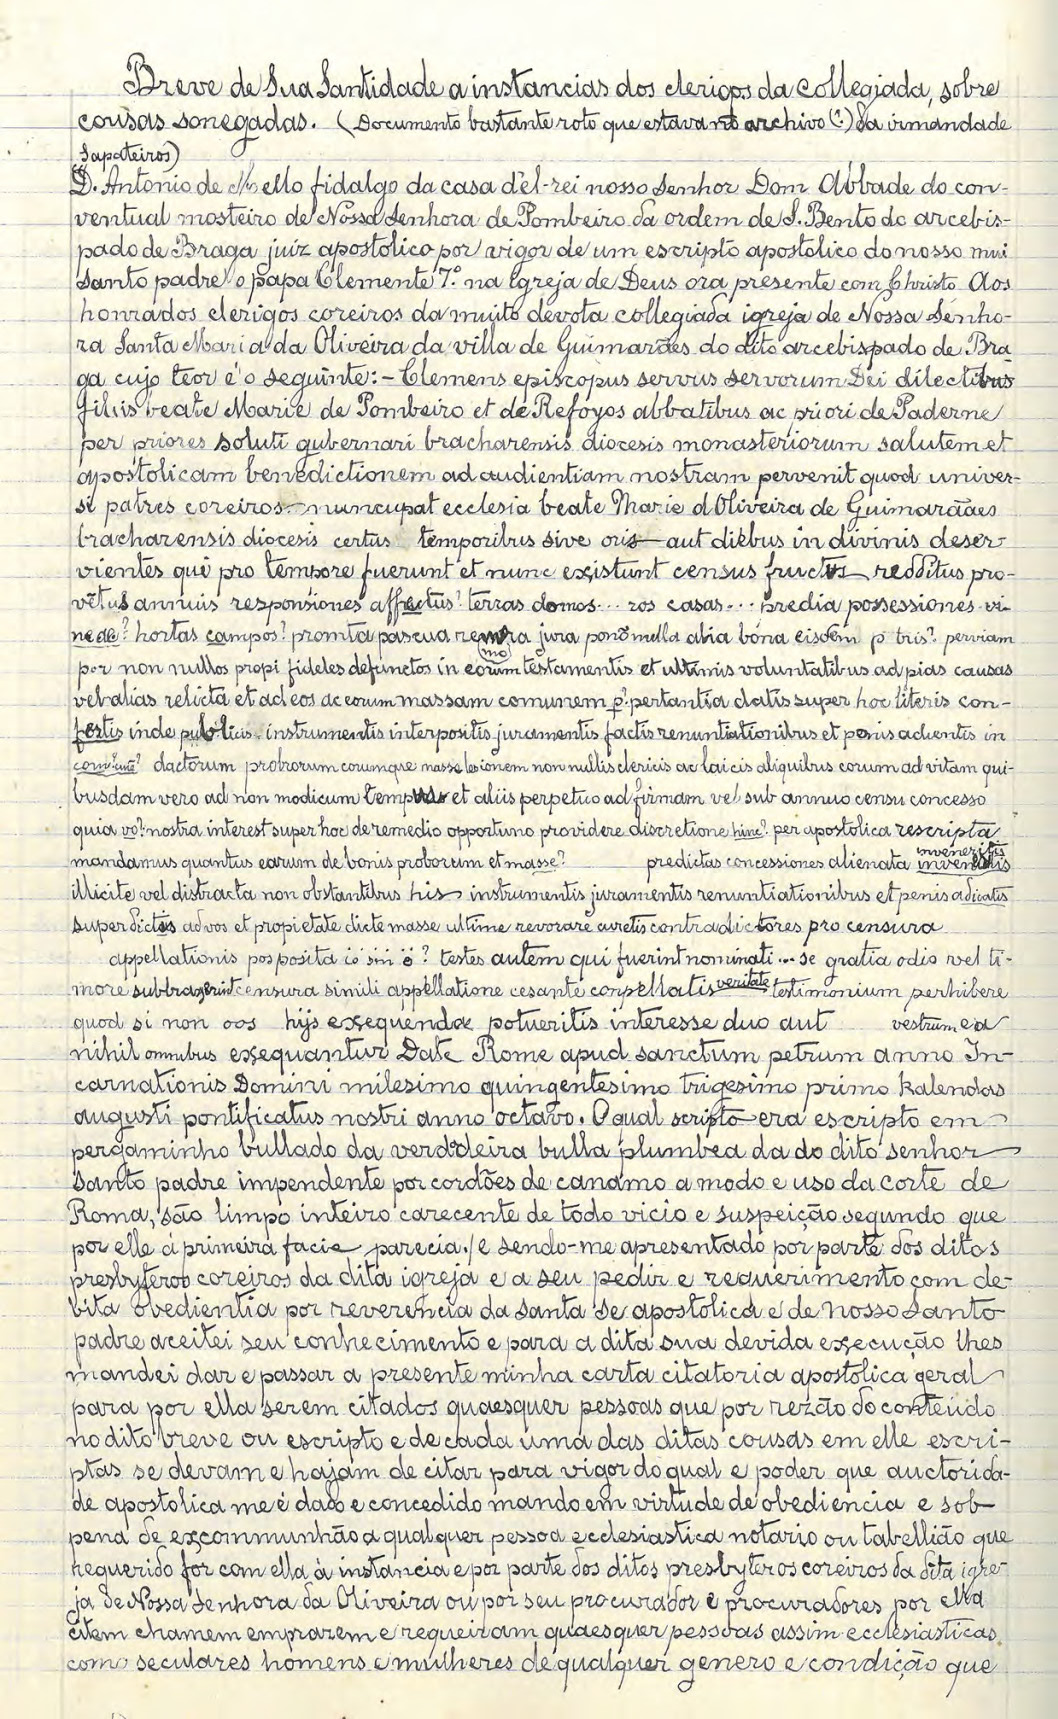 Breve de Sua Santidade a instancias dos clerigos da Collegiada, sobre
cousas sonegadas. (Documento bastante roto que estava no archivo (?) da irmandade
Sapateiros)
D. Antonio de Mello fidalgo da casa d'el-rei nosso Senhor Dom Abbade do con-
ventual mosteiro de Nossa Senhora de Pombeiro da ordem de S. Bento do arcebis-
pado de Braga juiz apostolico por vigor de um escripto apostolico do nosso mui
Santo padre o papa Clemente 7.º na Igreja de Deus ora presente com Christo Aos
honrados clerigos coreiros da muito devota collegiada igreja de Nossa Senho-
ra Santa Maria da Oliveira da villa de Guimarães do dito arcebispado de Bra
ga cujo teor é o seguinte: - Clemens episcopus servus servorum Dei dilectibus
filiis beate Marie de Pombeiro et de Refoyos abbatibus ac priori de Paderne
per priores soluti gubernari bracharensis diocesis monasteriorum salutem et
apostolicam benedictionem ad audientiam nostram pervenit quod univer-
si patres coreiros nuncupat ecclesia beate Marie d'Oliveira de Guimarãães
bracharensis diocesis certus temporibus sive oris aut diebus in divinis deser-
vientes qui pro tempore fuerunt et nunc existunt census fructus redditus pro-
vētus annuis responsiones affectus? terras domos... ros casas... predia possessiones vi-
nede? hortas campos? promta pascua nemora jura ponõ mella alia bona eisdem p tris? perviam
por non nullos propi fideles defunctos in eorum testamentis et ultimis voluntatibus ad pias causas
vel alias relicta et ad eos ac eorum massam comunem p? pertantia datis super hoc literis con-
fectis inde publicis instrumentis interpositis juramentis factis renuntiationibus et penis adientis in
dactorum probrorum eorumque masse lesionem non nullis clericis ac laicis aliquibus eorum ad vitam qui-
busdam vero ad non modicum tempus et aliis perpetuo ad firmam vel sub annuo censu concesso
quia vo? nostra interest super hoc de remedio opportuno providere discretione hinc? per apostolica rescripta
mandamus quantus earum de bonis proborum et masse? predictas concessiones alienata inveneritis
illicite vel distracta non obstantibus his instrumentis juramentis renuntiationibus et penis adicatis
superdictis ad vos et propietate dicte masse ultime revorare curetis contradictores pro censura
appellationis posposita testes autem qui fuerint nominati... se gratia odio vel ti-
more subtraxerint censura simili appellatione cesante conpellatis veritate testimonium perhibere
quod si non oos hijs exequendæ potueritis interesse duo aut vestrum ea
nihil omnibus exequantur Date Rome apud sanctum petrum anno In-
carnationis Domini milesimo quingentesimo trigesimo primo Kalendas
augusti pontificatus nostri anno octavo. O qual scripto era escripto em
pergaminho bullado da verdadeira bulla plumbea da do dito senhor
Santo padre impendente por cordões de canamo a modo e uso da corte de
Roma, são limpo inteiro carecente de todo vicio e suspeição segundo que
por elle á primeira facie parecia./ e sendo-me apresentado por parte dos ditos
presbyteros coreiros da dita igreja e a seu pedir e requerimento com de-
bita obedientia por reverencia da santa Se apostolica e de nosso Santo
padre aceitei seu conhecimento e para a dita sua devida execução lhes
mandei dar e passar a presente minha carta citatoria apostolica geral
para por ella serem citados quaesquer pessoas que por rezão do conteudo
no dito breve ou escripto e de cada uma das ditas cousas em elle escri-
ptas se devam e hajam de citar para vigor do qual e poder que auctorida-
de apostolica me é dado e concedido mando em virtude de obediencia e sob
pena de excommunhão a qualquer pessoa ecclesiastica notario ou tabellião que
requerido for com ella á instancia e por parte dos ditos presbyteros coreiros da dita igre-
ja de Nossa Senhora da Oliveira ou por seu procurador e procuradores por ella
citem chamem emprazem e requeiram quaesquer pessoas assim ecclesiasticas
como seculares homens e mulheres de qualquer genero e condição que